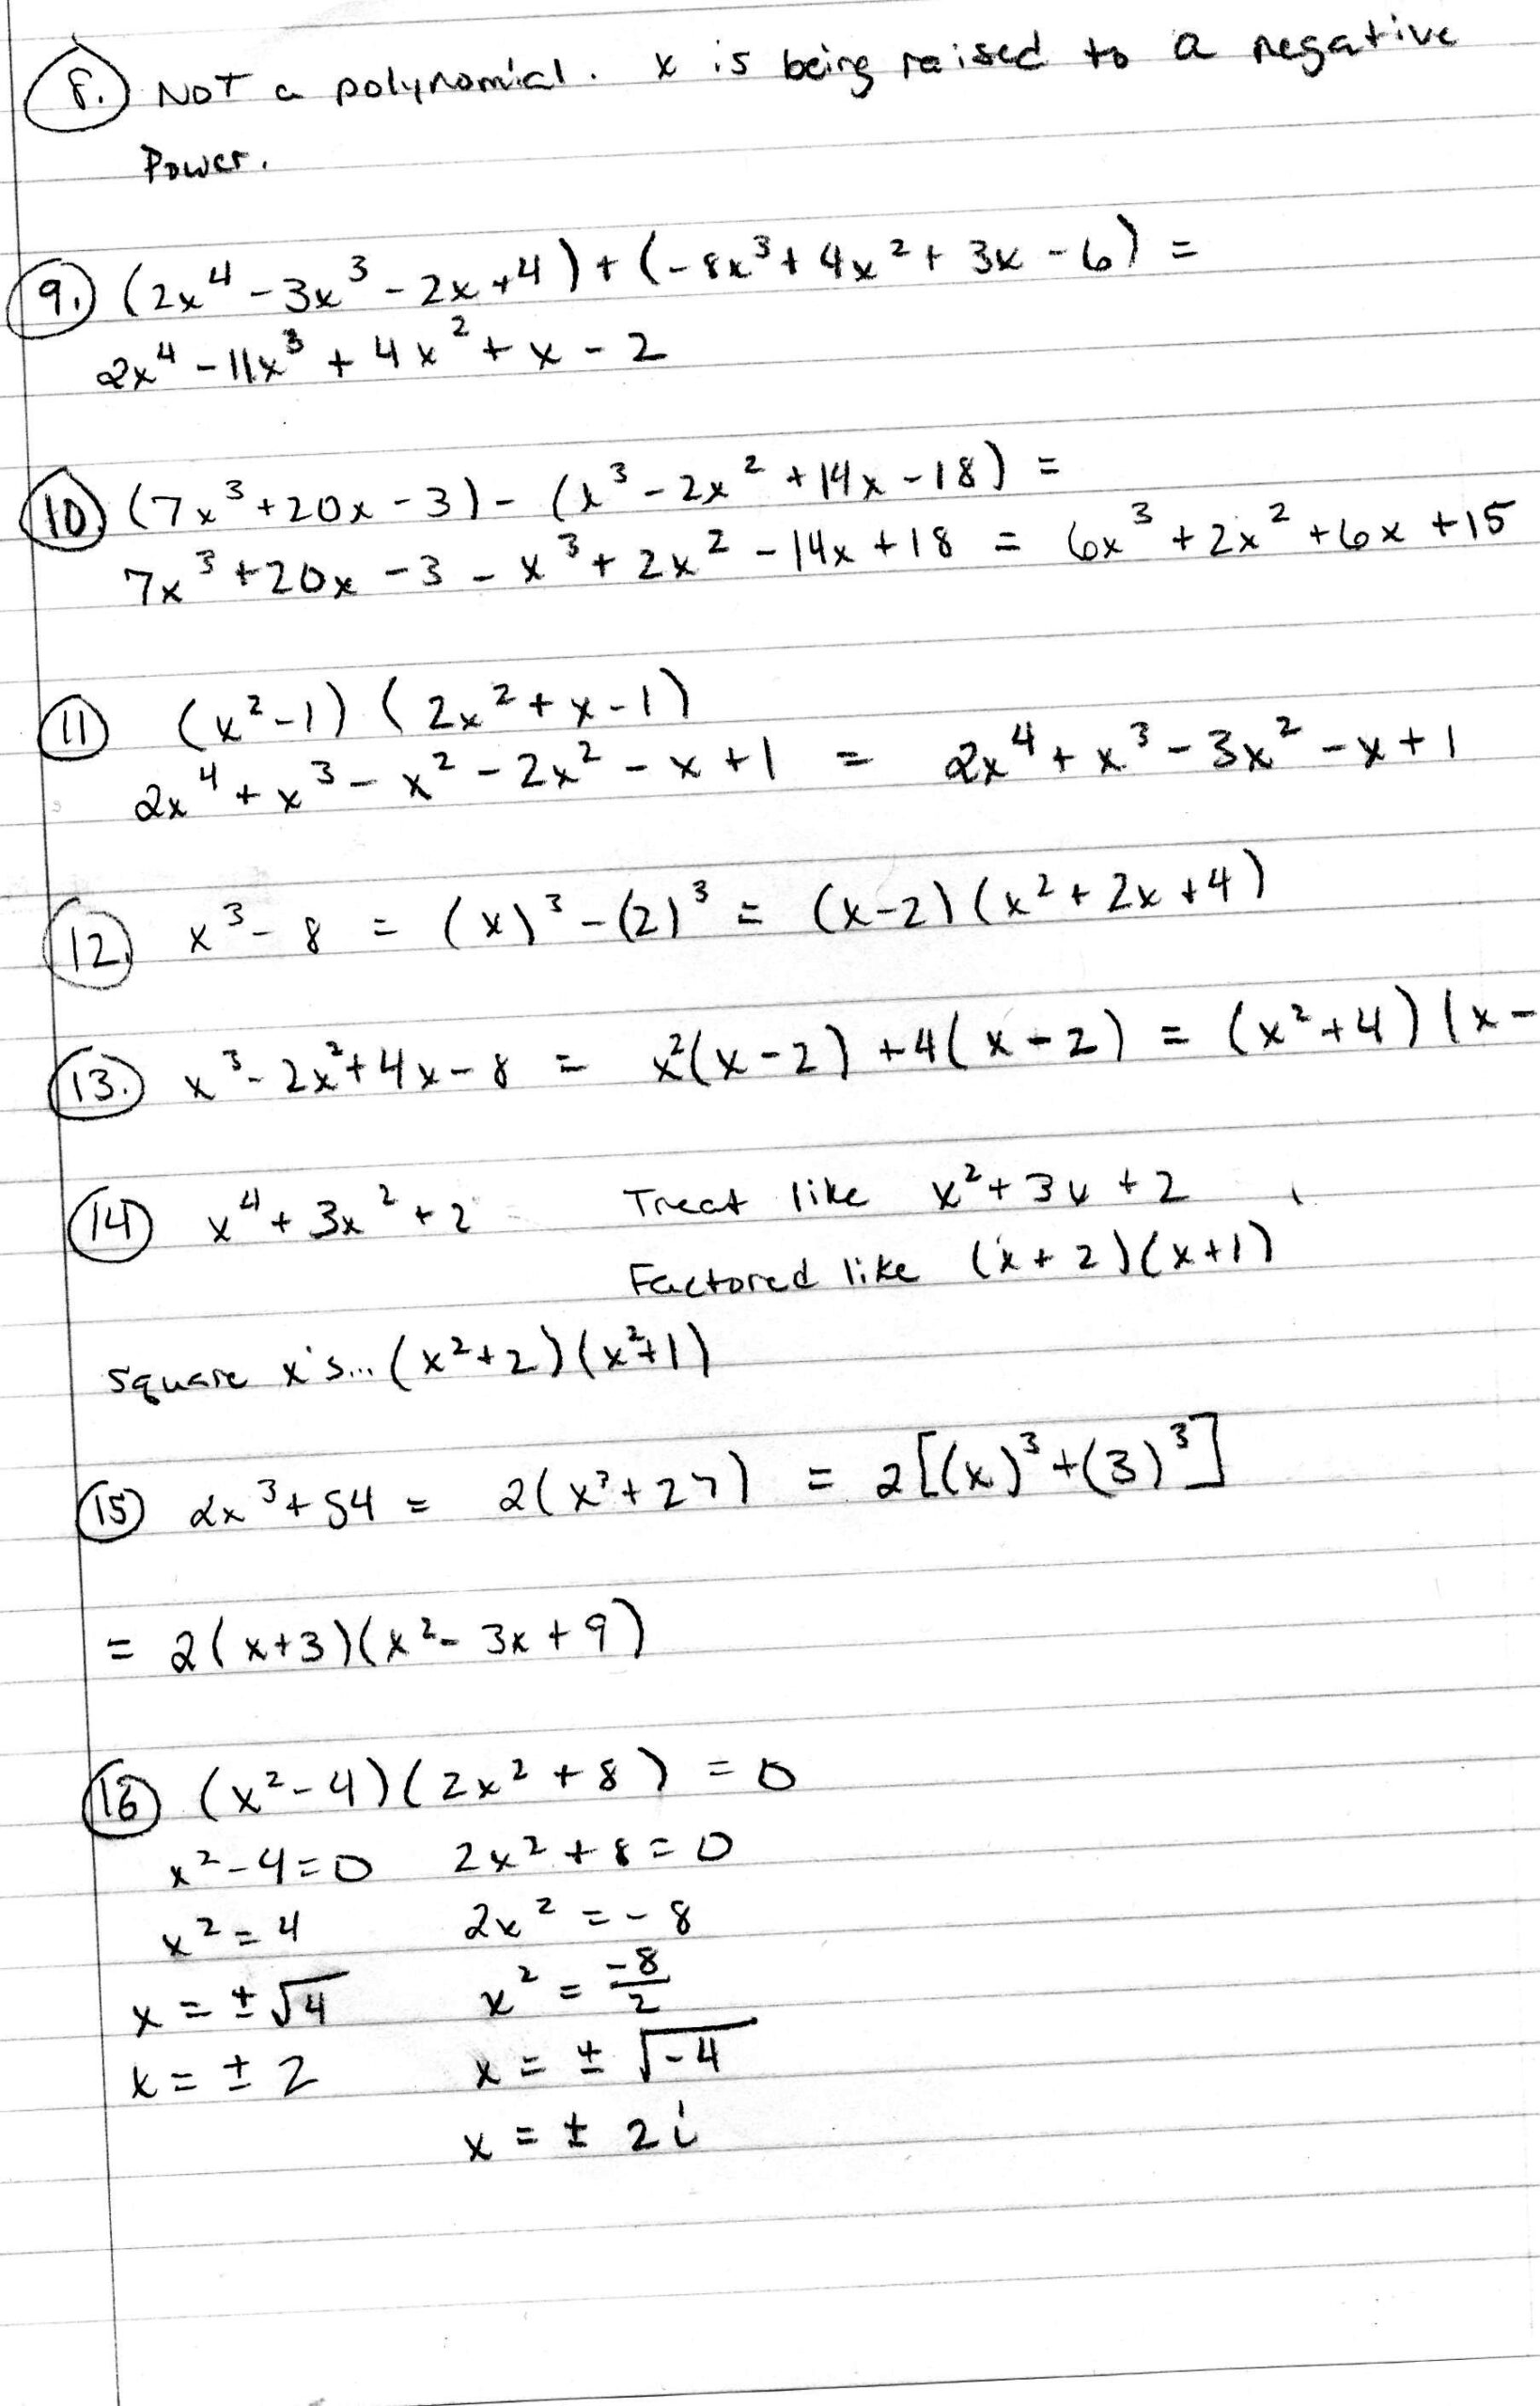 8. NOT a polynomial. x is being raised to a negative
Power.
9. (2x⁴ - 3x³ - 2x + 4) + (-8x³ + 4x² + 3x - 6) =
2x⁴ - 11x³ + 4x² + x - 2
10. (7x³ + 20x - 3) - (x³ - 2x² + 14x - 18) =
7x³ + 20x - 3 - x³ + 2x² - 14x + 18 = 6x³ + 2x² + 6x + 15
11 (x² - 1) (2x² + x - 1)
2x⁴ + x³ - x² - 2x² - x + 1 = 2x⁴ + x³ - 3x² - x + 1
12. x³ - 8 = (x)³ - (2)³ = (x - 2)(x² + 2x + 4)
13. x³ - 2x² + 4x - 8 = x²(x - 2) + 4(x - 2) = (x² + 4)(x -
14 x⁴ + 3x² + 2 Treat like x² + 3x + 2
Factored like (x + 2)(x + 1)
square x's... (x² + 2)(x² + 1)
15 2x³ + 54 = 2(x³ + 27) = 2[(x)³ + (3)³]
= 2(x + 3)(x² - 3x + 9)
16 (x² - 4)(2x² + 8) = 0
x² - 4 = 0 2x² + 8 = 0
x² = 4 2x² = -8
x = ±√4 x² = -8/2
x = ± 2 x = ± √-4
x = ± 2i